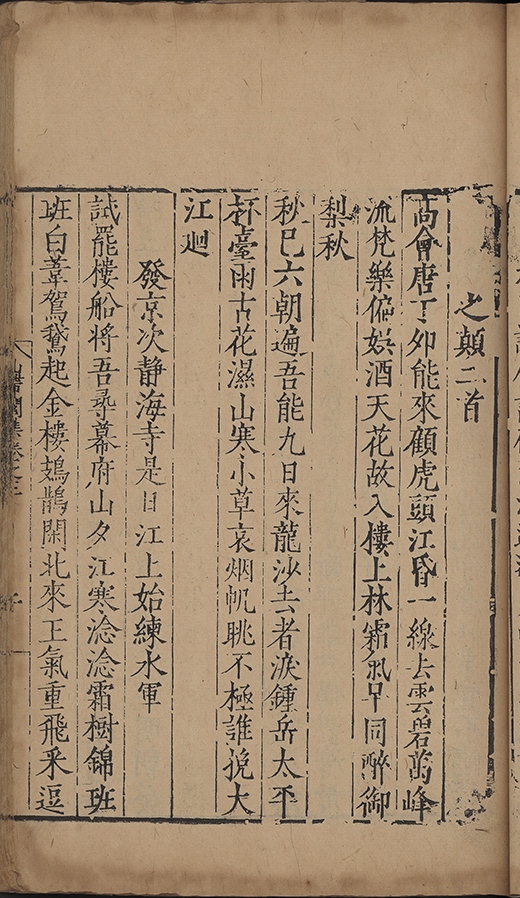 之顛二首
高會唐丁卯能來顧虎頭江昏一線去雲碧萬峰
流梵樂偏娱酒天花故入樓上林霜氣早同醉御
梨秋
秋已六朝遍吾能九日來龍沙去者淚鍾岳太平
杯臺雨古花濕山寒小草哀烟帆眺不極誰挽大
江廻
發京次静海寺是日江上始練水軍
試罷樓船將吾尋幕府山夕江寒淰淰霜樹錦班
班白葦駕鵝起金樓鳷鵲閑北來王氣重飛釆逗